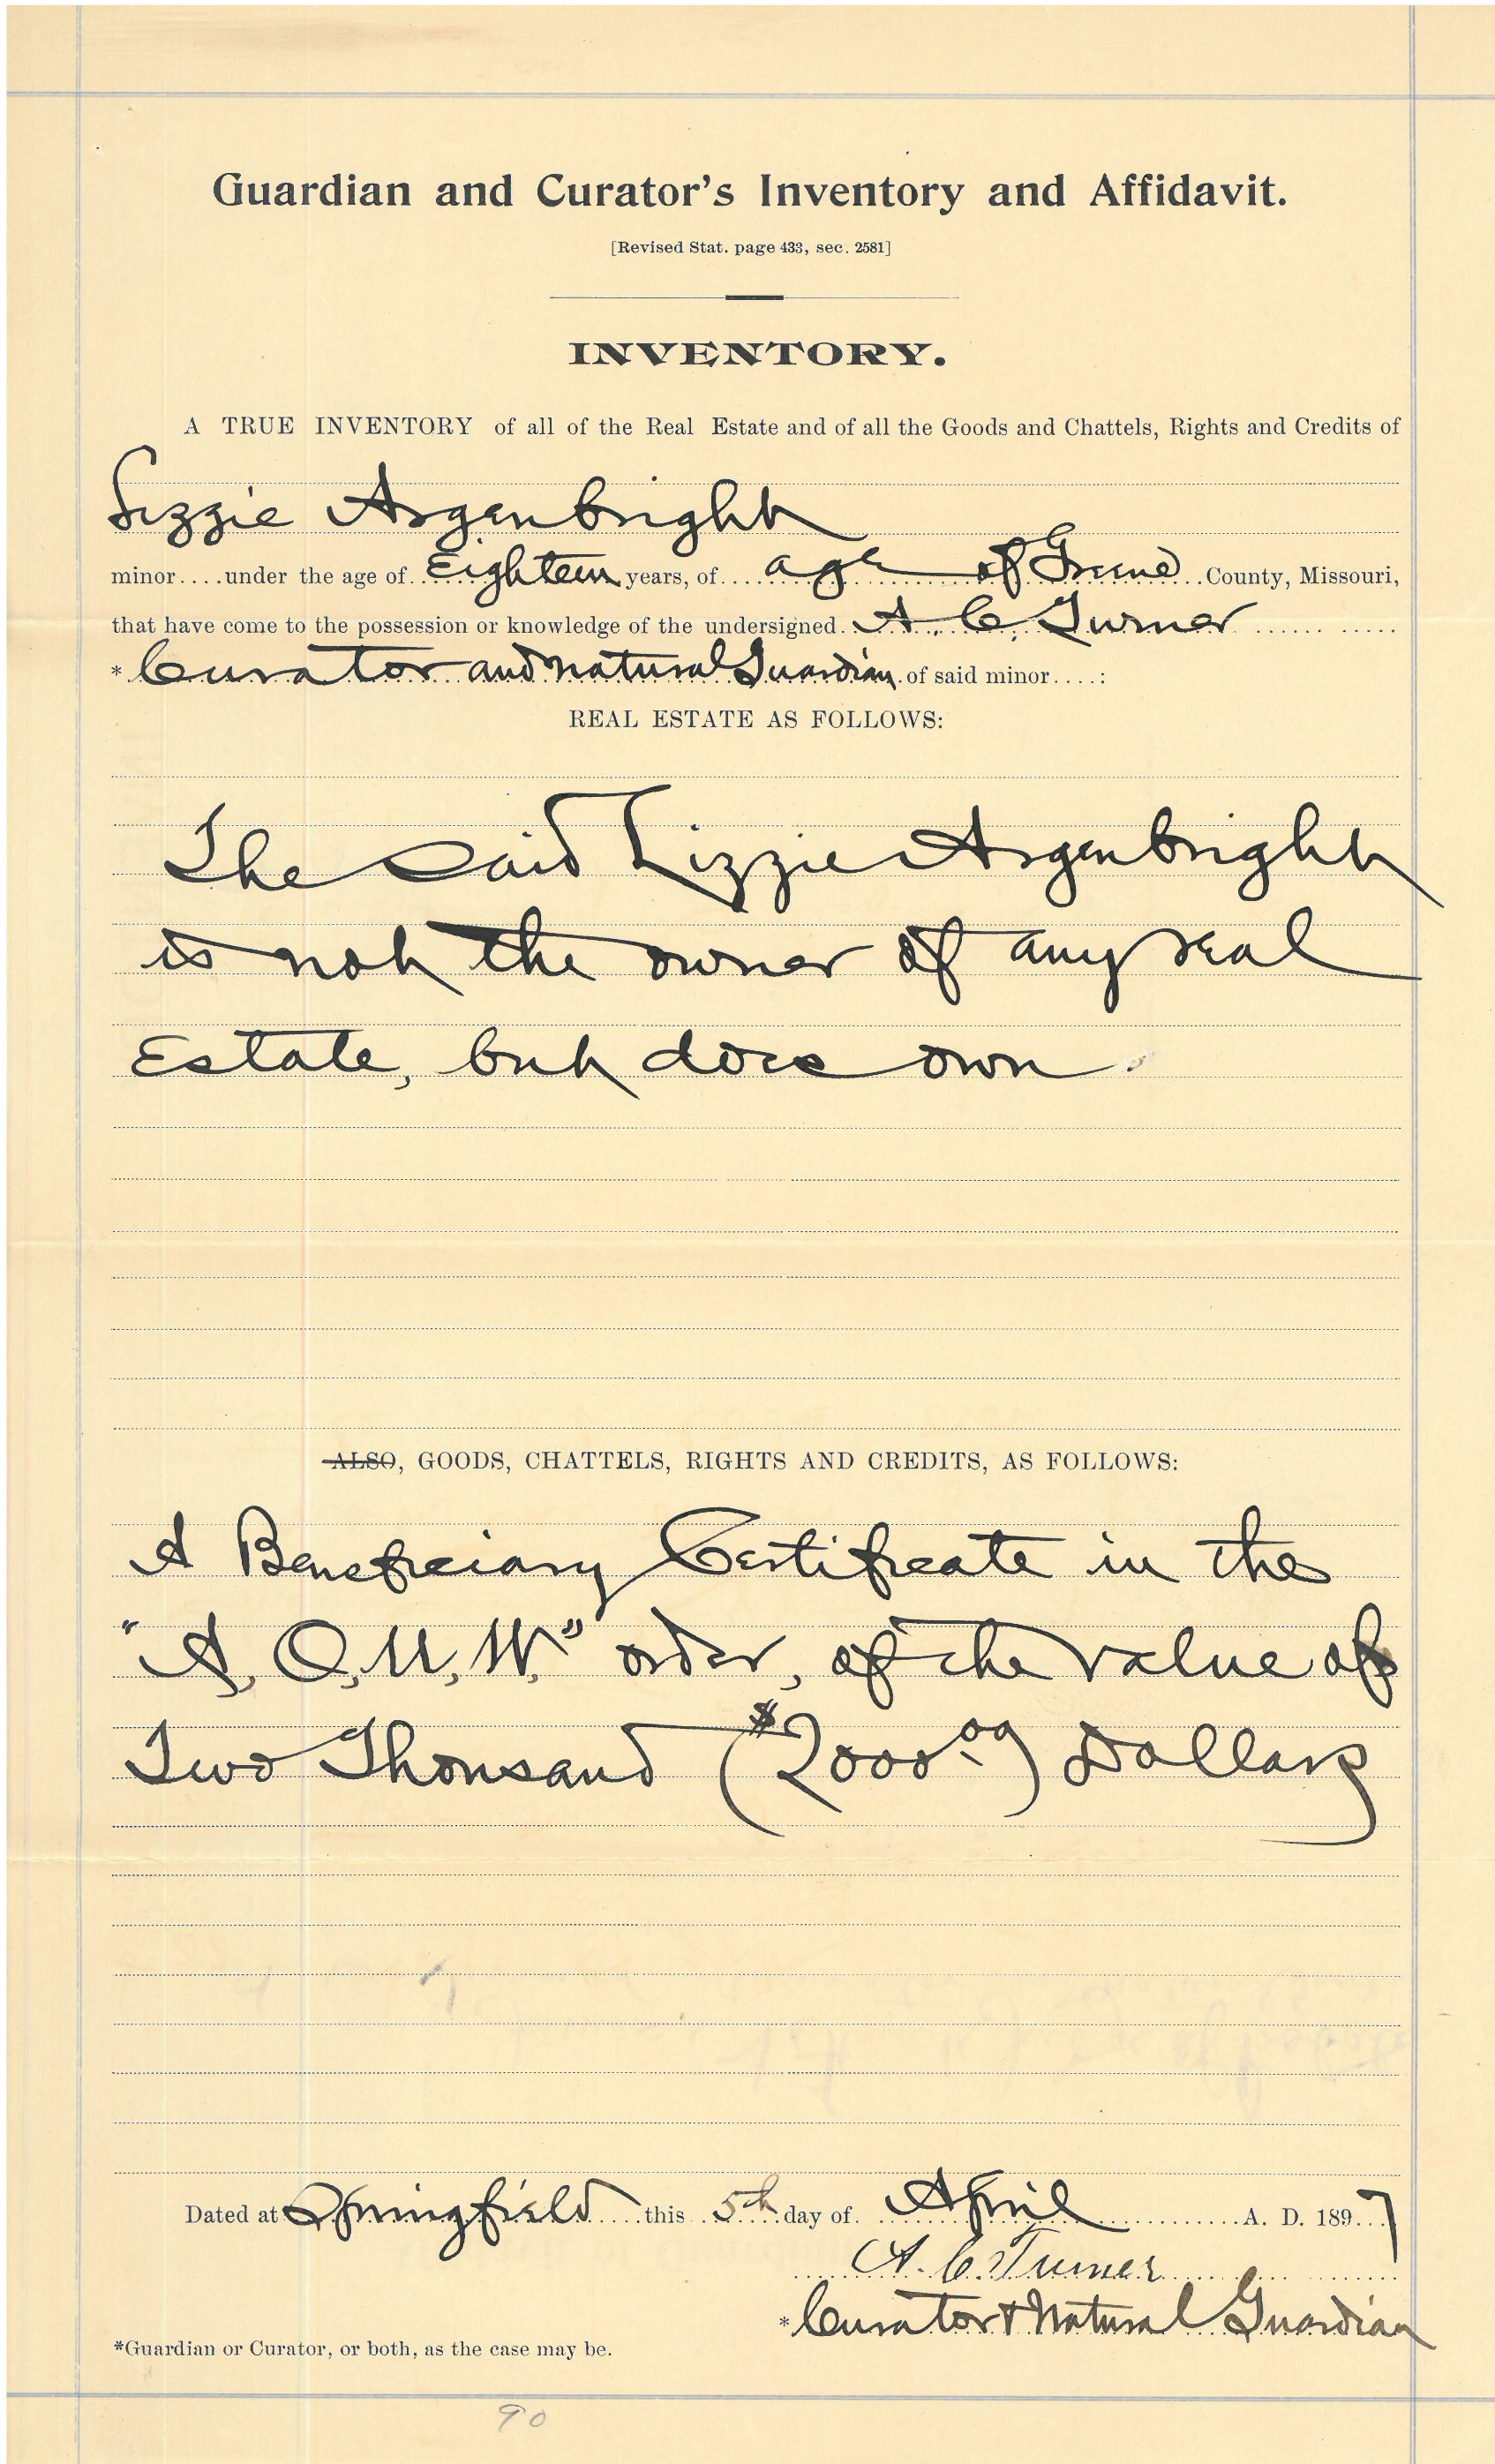 Guardian and Curator's Inventory and Affidavit.
[Revised Stat. page 433, sec. 2581]
INVENTORY.
A TRUE INVENTORY of all of the Real Estate and of all the Goods and Chattels, Rights and Credits of
Lizzie Argenbright
minor....under the age of Eighteen years, of age of Greene County, Missouri,
that have come to the possession or knowledge of the undersigned A. C. Turner
* Curator and Natural Guardian of said minor....:
REAL ESTATE AS FOLLOWS:
The said Lizzie Argenbright
is not the owner of any real
Estate, but does own
ALSO, GOODS, CHATTELS, RIGHTS AND CREDITS, AS FOLLOWS:
A Beneficiary Certificate in the
"A, O, U, W." order, of the value of
Two Thousand ($2000.00) Dollars
Dated at Springfield this 5th day of April A. D. 1897
A. C. Turner
* Curator & Natural Guardian
*Guardian or Curator, or both, as the case may be.
90